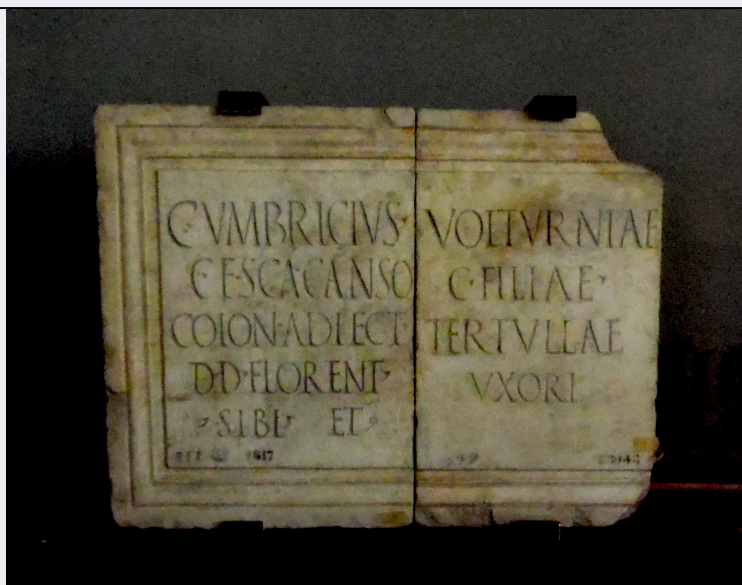 C·VMBRICIVS·
C·F·SCA·CANSO
COLON·ADLECT·
D·D·FLORENT·
SIBI· ET
VOLTVRNIAE
C·FILIAE·
TERTVLLAE
VXORI